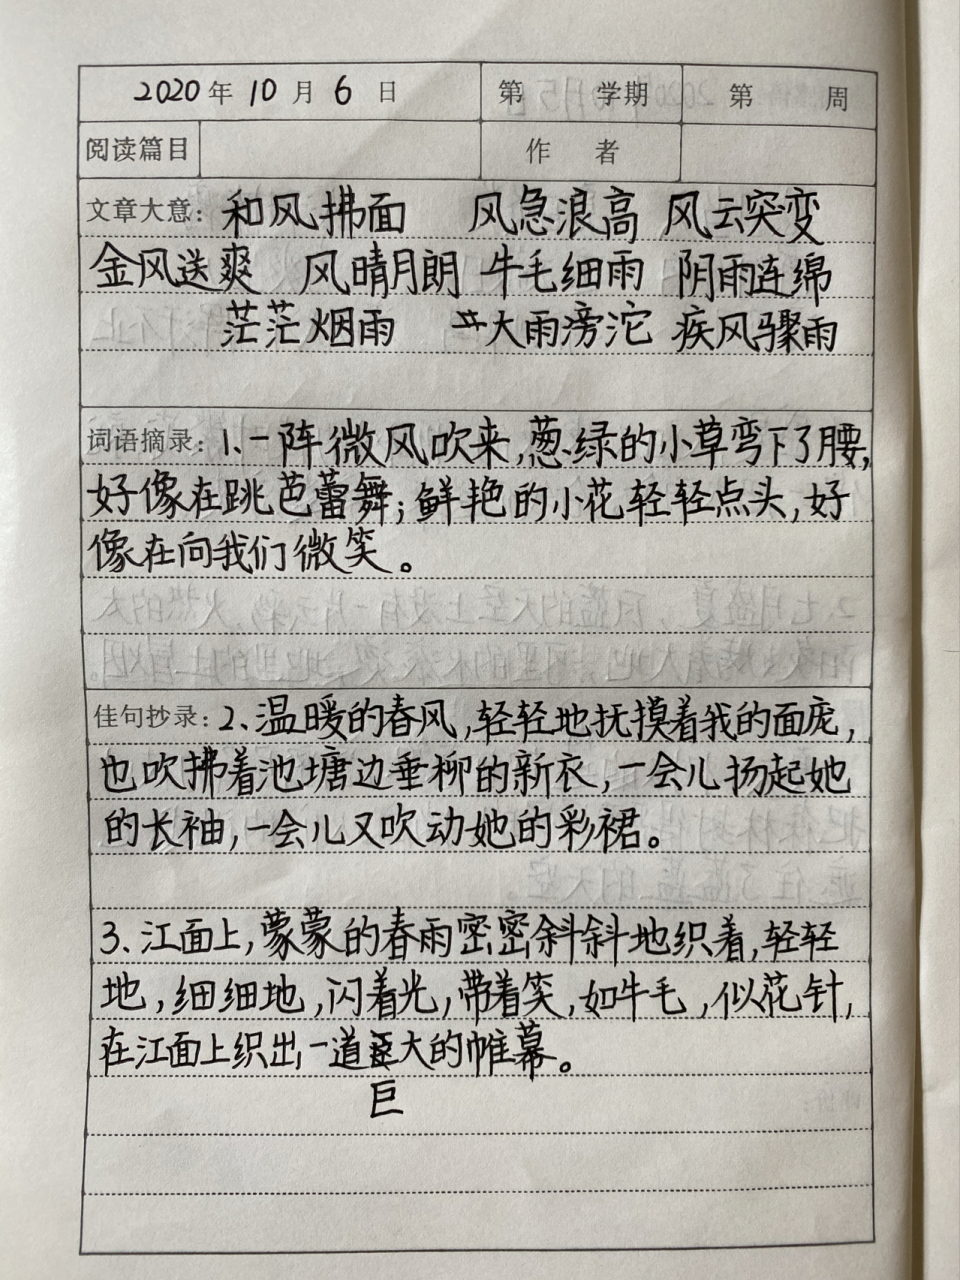 2020年10月6日 第 学期 第 周
阅读篇目 作 者
文章大意：和风拂面 风急浪高 风云突变
金风送爽 风晴月朗 牛毛细雨 阴雨连绵
茫茫烟雨 大雨滂沱 疾风骤雨
词语摘录：1、一阵微风吹来，葱绿的小草弯下了腰，
好像在跳芭蕾舞；鲜艳的小花轻轻点头，好
像在向我们微笑。
佳句抄录：2、温暖的春风，轻轻地抚摸着我的面庞，
也吹拂着池塘边垂柳的新衣，一会儿扬起她
的长袖，一会儿又吹动她的彩裙。
3、江面上，蒙蒙的春雨密密斜斜地织着，轻轻
地，细细地，闪着光，带着笑，如牛毛，似花针，
在江面上织出一道大的帷幕。
巨